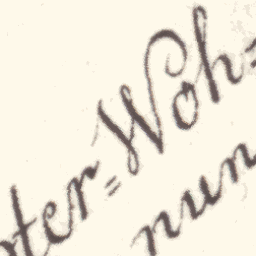 ter=Woh=
nun